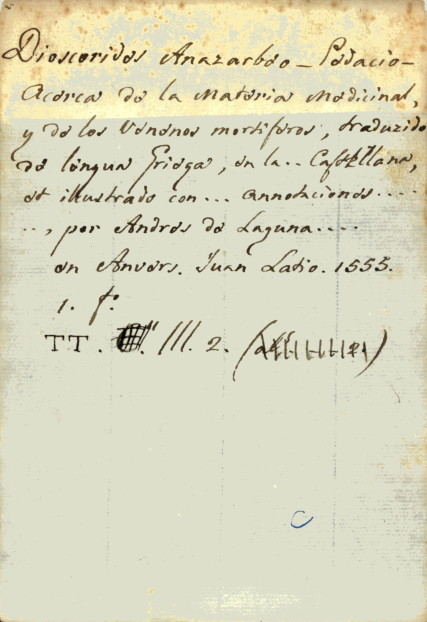 Dioscorides Anazarbeo - Pedacio -
Acerca de la Materia Medicinal,
y de los venenos mortiferos, traduzido
de lengua Griega, en la .. Castellana,
et illustrado con ... annotaciones ....
.., por Andres de Laguna ....
en Anvers. Juan Latio. 1555.
1. f.º
TT. III. 2.